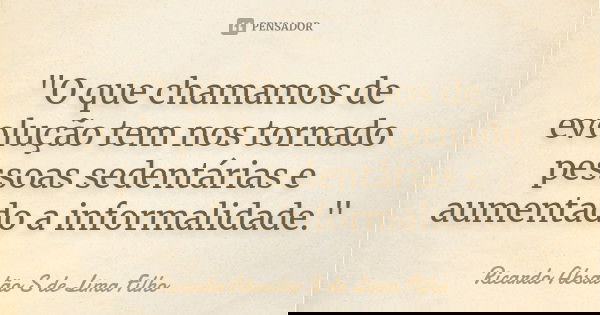 PENSADOR
"O que chamamos de
evolução tem nos tornado
pessoas sedentárias e
aumentado a informalidade."
Ricardo Absalão S de Lima Filho